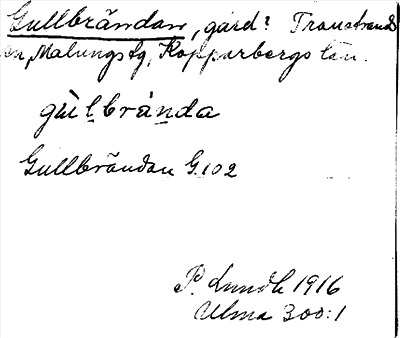 Gullbrändan, gård? Transtrands
sn, Malungs tg, Kopparbergs län.
gùlbrànda
Gullbrändan G.102
P. Lundh 1916
Ulma 300:1